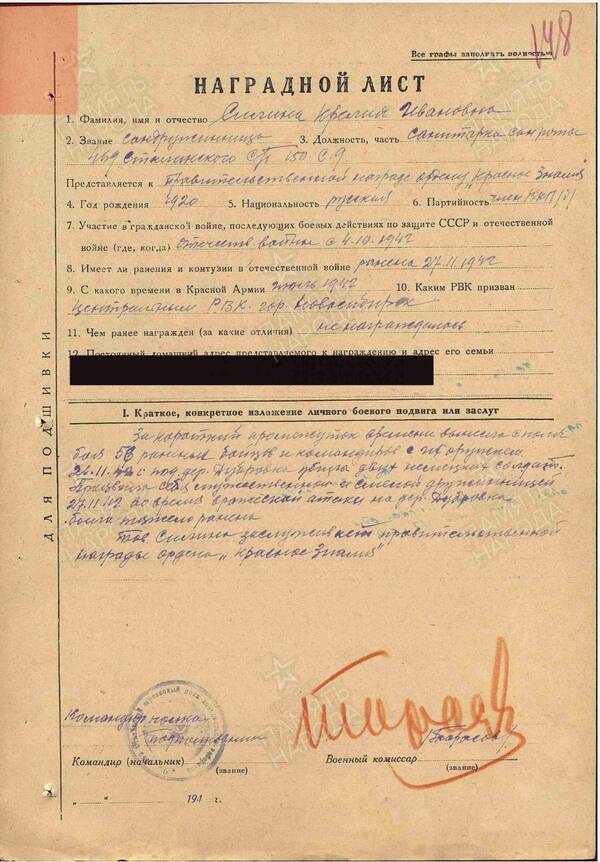 148
Все графы заполнять полностью
НАГРАДНОЙ ЛИСТ
1. Фамилия, имя и отчество Ивановна
2. Звание сандружинница 3. Должность, часть санитарка сан роты
469 Сталинского СП 150 С.Д.
Представляется к Правительственной награде ордену „Красное Знамя"
4. Год рождения 1920 5. Национальность русская 6. Партийность член ВКП(б)
7. Участие в гражданской войне, последующих боевых действиях по защите СССР и отечественной
войне (где, когда) Отечеств. война с 4.10.1942
8. Имеет ли ранения и контузии в отечественной войне ранена 27.11.1942
9. С какого времени в Красной Армии 1942 10. Каким РВК призван
Центральным РВК гор. Новосибирск
11. Чем ранее награжден (за какие отличия) не награждалась
12. Постоянный домашний адрес представляемого к награждению и адрес его семьи
ДЛЯ ПОДШИВКИ
I. Краткое, конкретное изложение личного боевого подвига или заслуг
За короткий промежуток времени вынесла с поля
боя 56 раненых бойцов и командиров с их оружием.
24.11.42 г. под дер. Дубровка убила двух немецких солдат.
Проявила себя мужественной и смелой дружинницей
27.11.42 во время вражеской атаки на дер. Дубровка
была тяжело ранена
Тов. заслуживает правительственной
награды ордена „Красное Знамя"
Командир полка
подполковник
Командир (начальник)
(звание)
Военный комиссар
(звание)
„ " 194 г.
ПАМЯТЬ НАРОДА